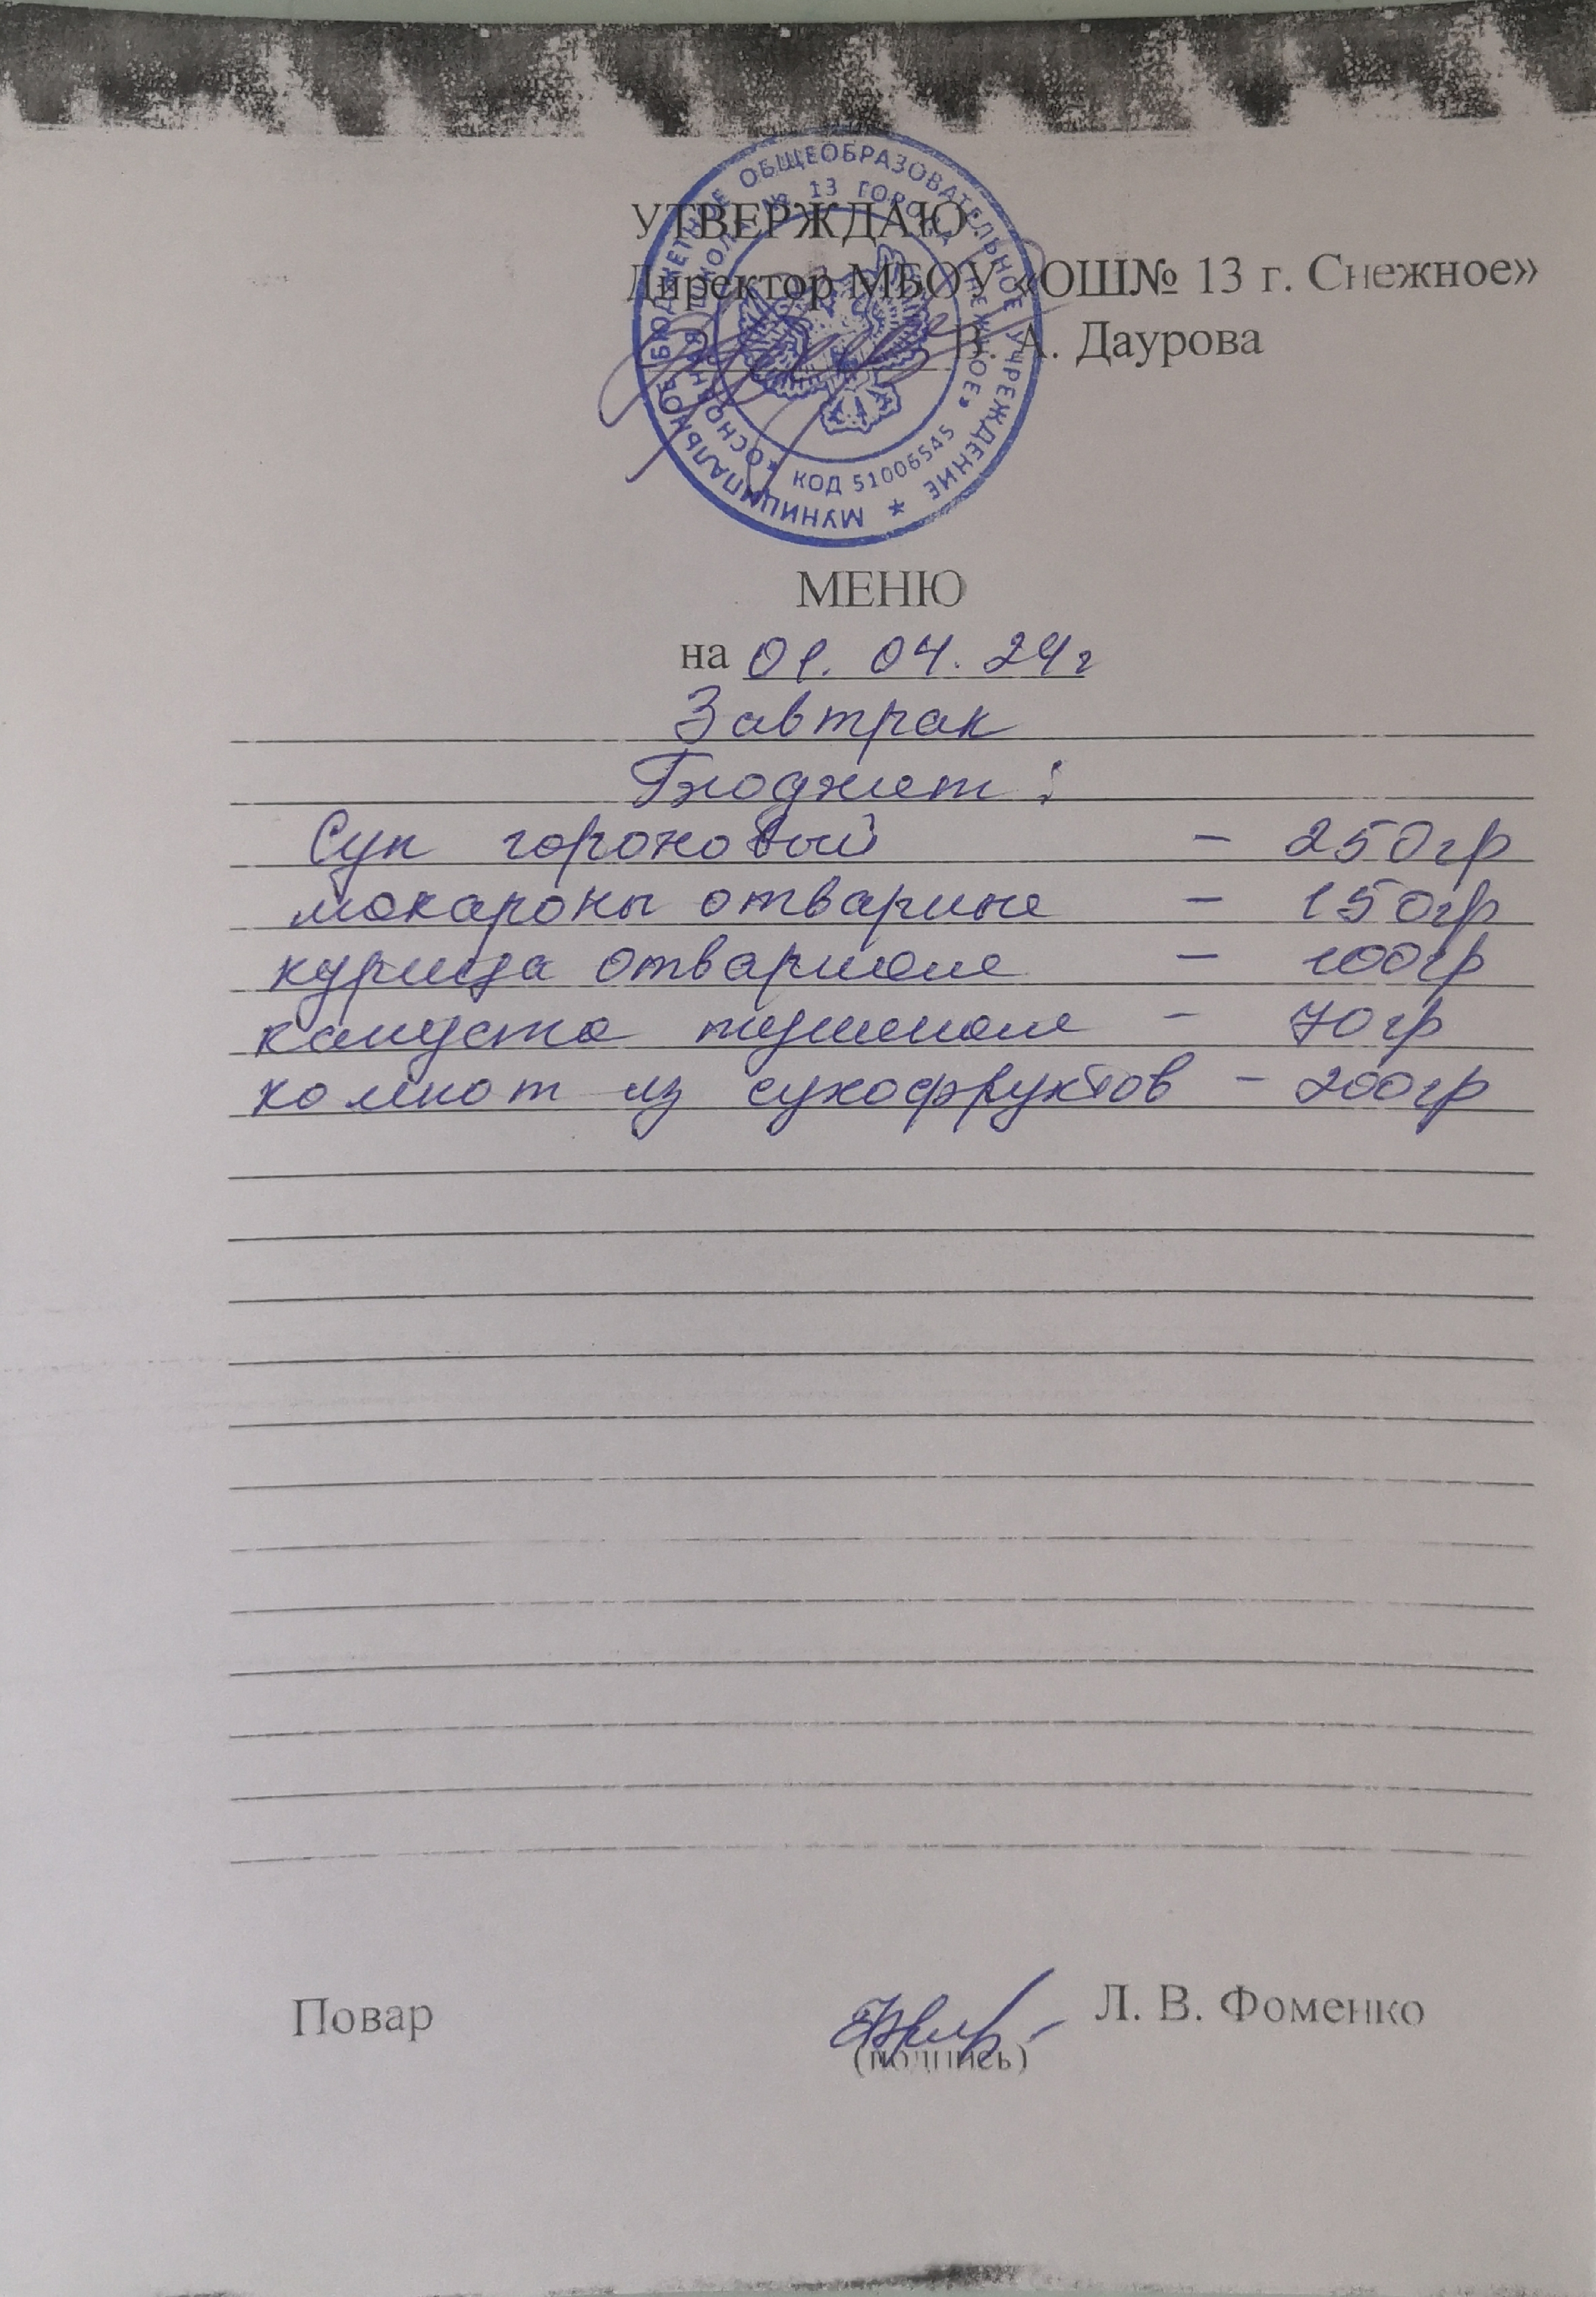 УТВЕРЖДАЮ
Директор МБОУ «ОШ№ 13 г. Снежное»
В. А. Даурова
МУНИЦИПАЛЬНОЕ БЮДЖЕТНОЕ ОБЩЕОБРАЗОВАТЕЛЬНОЕ УЧРЕЖДЕНИЕ *
«ОСНОВНАЯ ШКОЛА № 13 ГОРОДА СНЕЖНОЕ»
КОД 51006545
МЕНЮ
на 01. 04. 24г
Завтрак
Бюджет:
Суп гороховый – 250гр
макароны отварные – 150гр
курица отварная – 100гр
капуста тушеная – 70гр
компот из сухофруктов – 200гр
Повар Л. В. Фоменко
(подпись)